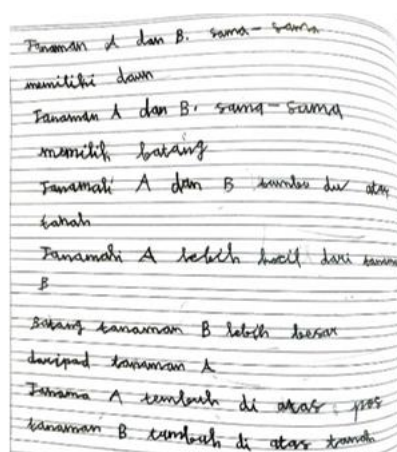 Tanaman A dan B. sama-sama
memiliki daun
Tanaman A dan B. sama-sama
memilih batang
Tanamali A dan B tumbu du atas
tanah
Tanamahi A lebih kecil dari tanam
B
Batang tanaman B lebih besar
daripad tanaman A
Tanama A tumbuh di atas pos
tanaman B tumbuh di atas tanah